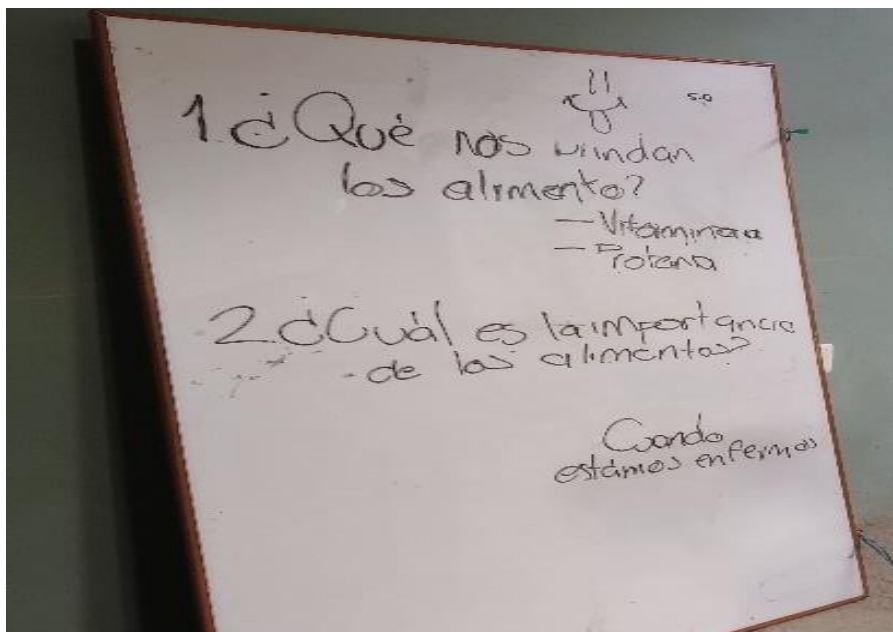 5.0
1 ¿Qué nos brindan
los alimento?
— Vitaminas
— Protena
2 ¿Cuál es la importancia
de los alimentos?
Cuando
estámos enfermos